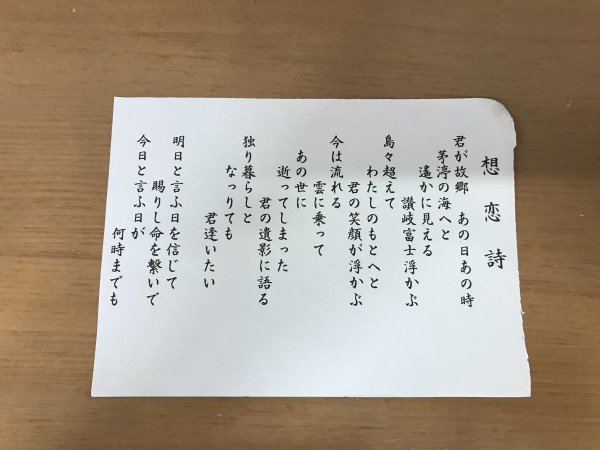 想恋詩
君が故郷　あの日あの時
茅渟の海へと
遙かに見える
讃岐富士浮かぶ
島々超えて
わたしのもとへと
君の笑顔が浮かぶ
今は流れる
雲に乗って
あの世に
逝ってしまった
君の遺影に語る
独り暮らしと
なっりても
君逢いたい
明日と言ふ日を信じて
賜りし命を繋いで
今日と言ふ日が
何時までも